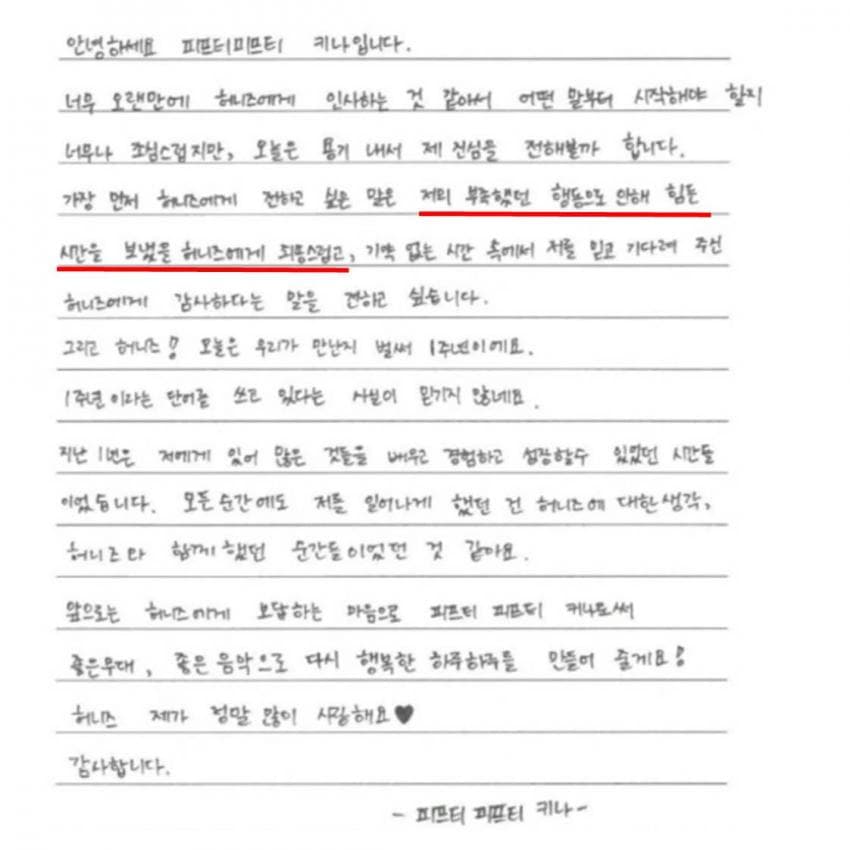 안녕하세요 피프티피프티 키나입니다.
너무 오랜만에 허니즈에게 인사하는 것 같아서 어떤 말부터 시작해야 할지
너무나 조심스럽지만, 오늘은 용기 내서 제 진심을 전해볼까 합니다.
가장 먼저 허니즈에게 전하고 싶은 말은 저의 부족했던 행동으로 인해 힘든
시간을 보냈을 허니즈에게 죄송스럽고, 기약 없는 시간 속에서 저를 믿고 기다려 주신
허니즈에게 감사하다는 말을 전하고 싶습니다.
그리고 허니즈! 오늘은 우리가 만난지 벌써 1주년이에요.
1주년이라는 단어를 쓰고 있다는 사실이 믿기지 않네요.
지난 1년은 저에게 있어 많은 것들을 배우고 경험하고 성장할수 있었던 시간들
이었습니다. 모든순간에도 저를 일어나게 했던 건 허니즈에 대한생각,
허니즈와 함께했던 순간들이었던 것 같아요.
앞으로는 허니즈에게 보답하는 마음으로 피프티 피프티 키나로써
좋은무대, 좋은 음악으로 다시 행복한 하루하루를 만들어 줄게요!
허니즈 제가 정말 많이 사랑해요♥
감사합니다.
- 피프티 피프티 키나 -